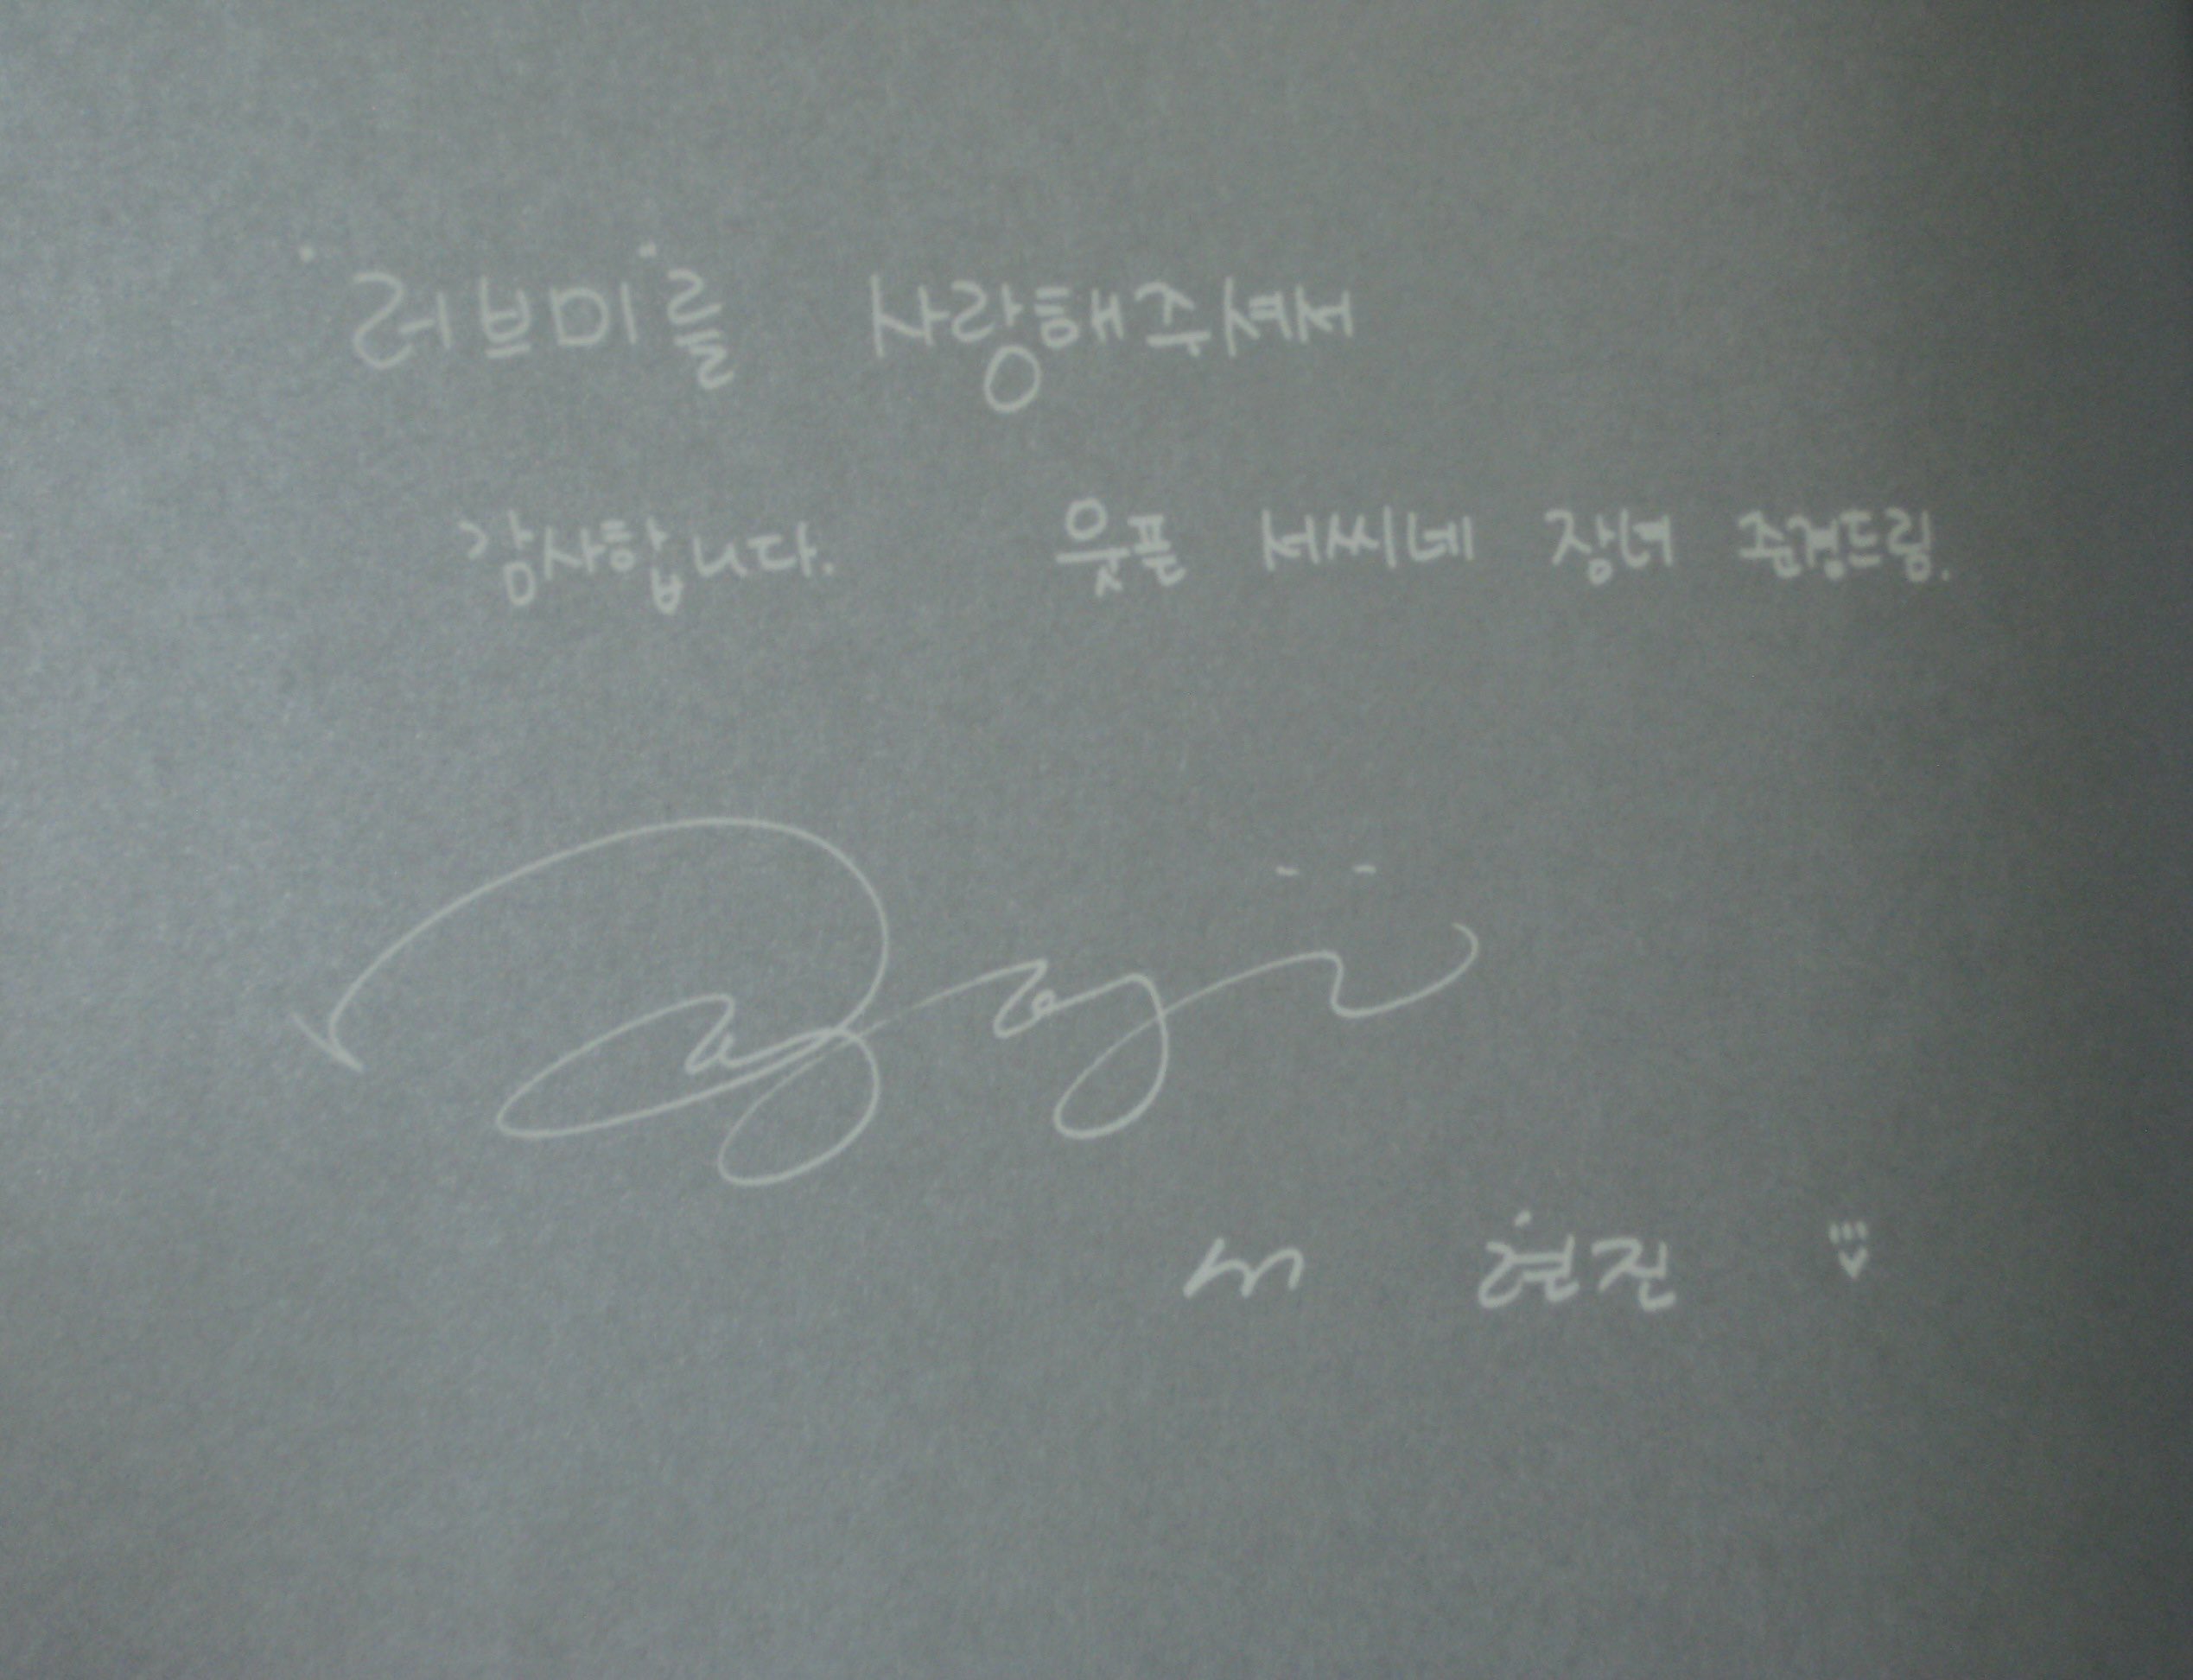 "러브미"를 사랑해주셔서
감사합니다. 웃픈 서씨네 장녀 준경드림.
현진